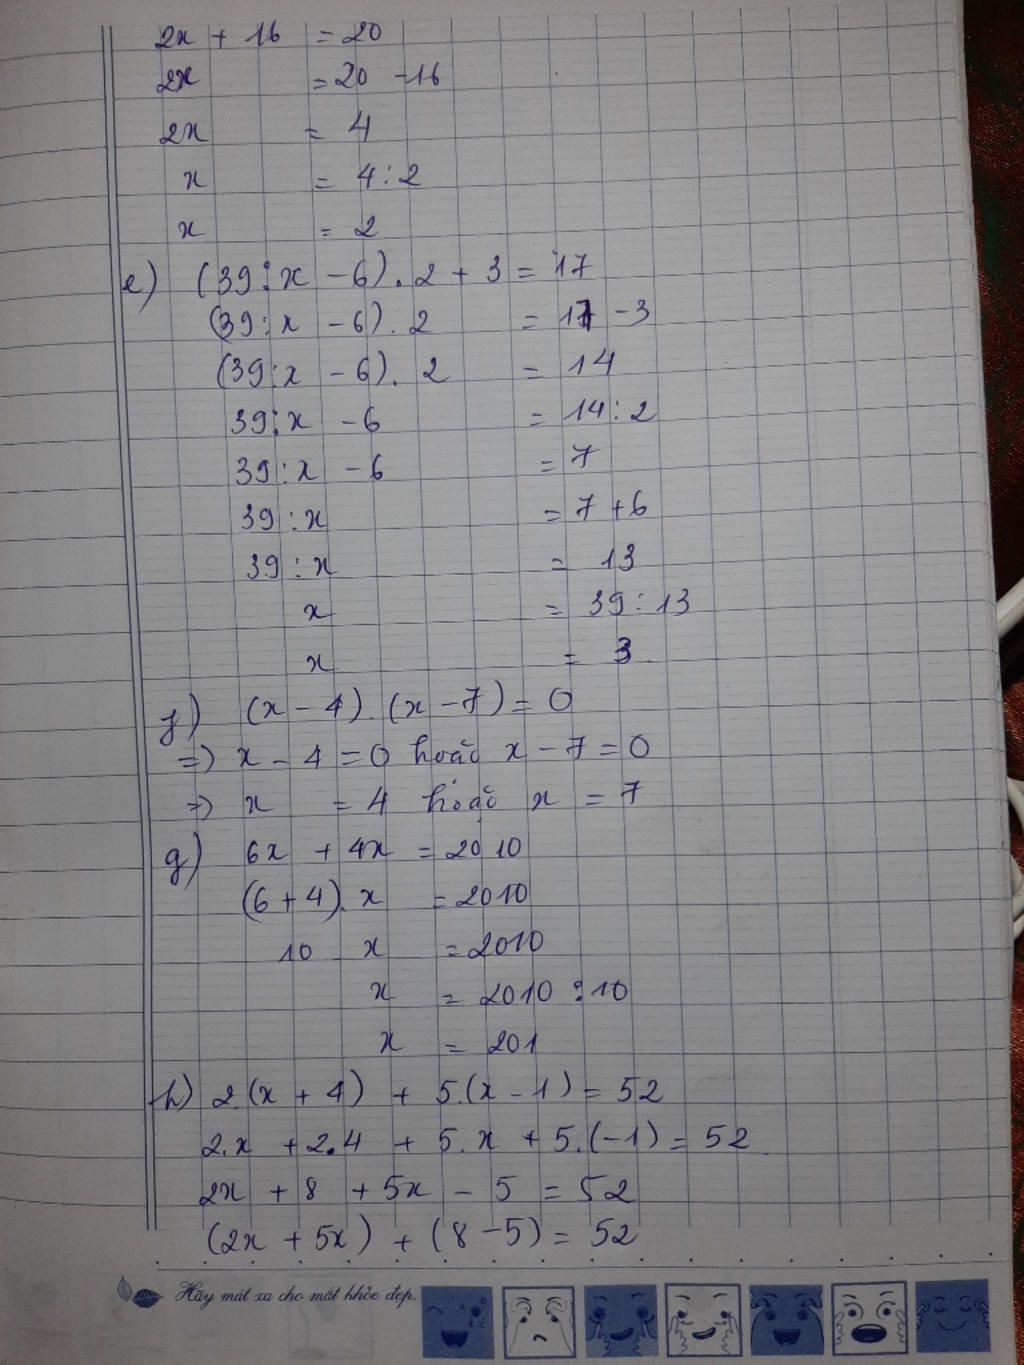 2x + 16 = 20
2x = 20 - 16
2x = 4
x = 4 : 2
x = 2
e) (39 : x - 6) . 2 + 3 = 17
(39 : x - 6) . 2 = 17 - 3
(39 : x - 6) . 2 = 14
39 : x - 6 = 14 : 2
39 : x - 6 = 7
39 : x = 7 + 6
39 : x = 13
x = 39 : 13
x = 3
f) (x - 4) . (x - 7) = 0
=> x - 4 = 0 hoặc x - 7 = 0
=> x = 4 hoặc x = 7
g) 6x + 4x = 2010
(6 + 4) . x = 2010
10 x = 2010
x = 2010 : 10
x = 201
h) 2.(x + 4) + 5.(x - 1) = 52
2.x + 2.4 + 5.x + 5.(-1) = 52
2x + 8 + 5x - 5 = 52
(2x + 5x) + (8 - 5) = 52
Hãy mát xa cho mắt khỏe đẹp.